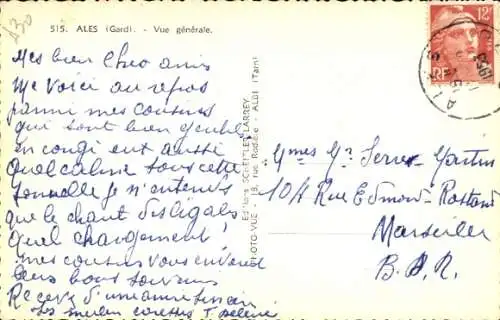 515. ALES (Gard). - Vue générale.
Mes bien Chers amis
Me voici au repos
parmi mes cousins
qui sont bien gentils
en congé eux aussi
Quel calme sous cette
tonnelle je n'entends
que le chant des cigales
Quel changement!
mes cousins vous envoient
leurs bons souvenirs
Recevez d'une amie sincère
les meilleures caresses
Editions SCHETTLE LARREY
PHOTO-VUE - 18, rue Rodière - ALBI (Tarn)
12F
RF
ALES
Mmes Serre-Martin
101 Rue Edmond Rostand
Marseille
B. D. R.